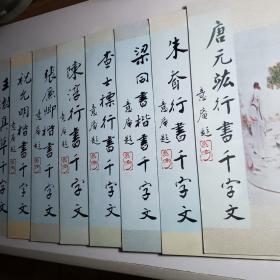 唐元竑行書千字文
意庵題
朱耷行書千字文
意庵題
梁同書楷書千字文
意庵題
查士標行書千字文
意庵題
陳淳行書千字文
意庵題
張廉卿楷書千字文
意庵題
祝允明楷書千字文
意庵題
千字文